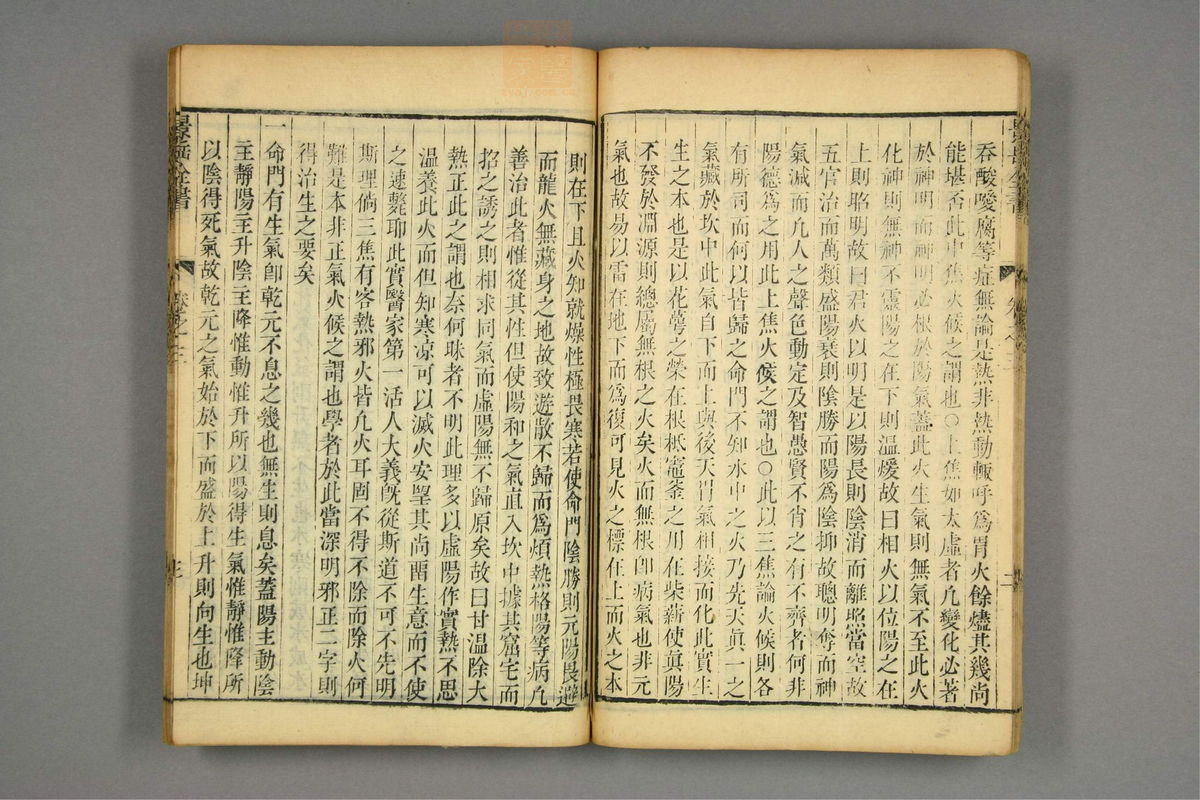 吞酸嗳腐等症無論是熱非熱動輒呼爲胃火餘燼其幾尚
能堪否此中焦火候之謂也○上焦如太虛者凡變化必著
於神明而神明必根於陽氣蓋此火生氣則無氣不至此火
化神則無神不靈陽之在下則温煖故曰相火以位陽之在
上則昭明故曰君火以明是以陽長則陰消而離照當空故
五官治而萬類盛陽衰則陰勝而陽爲陰抑故聰明奪而神
氣減而凡人之聲色動定及智愚賢不肖之有不齊者何非
陽德爲之用此上焦火候之謂也○此以三焦論火候則各
有所司而何以皆歸之命門不知水中之火乃先天眞一之
氣藏於坎中此氣自下而上與後天胃氣相接而化此實生
生之本也是以花萼之榮在根柢竈釜之用在柴薪使眞陽
不發於淵源則總屬無根之火矣火而無根卽病氣也非元
氣也故易以雷在地下而爲復可見火之標在上而火之本
則在下且火知就燥性極畏寒若使命門陰勝則元陽畏避
而龍火無藏身之地故致遊散不歸而爲煩熱格陽等病凡
善治此者惟從其性但使陽和之氣直入坎中據其窟宅而
招之誘之則相求同氣而虛陽無不歸原矣故曰甘温除大
熱正此之謂也奈何昧者不明此理多以虛陽作實熱不思
温養此火而但知寒凉可以滅火安望其尚留生意而不使
之速斃耶此實醫家第一活人大義旣從斯道不可不先明
斯理倘三焦有客熱邪火皆凡火耳固不得不除而除火何
難是本非正氣火候之謂也學者於此當深明邪正二字則
得治生之要矣
一命門有生氣卽乾元不息之幾也無生則息矣蓋陽主動陰
主靜陽主升陰主降惟動惟升所以陽得生氣惟靜惟降所
以陰得死氣故乾元之氣始於下而盛於上升則向生也坤
景岳全書
卷之三